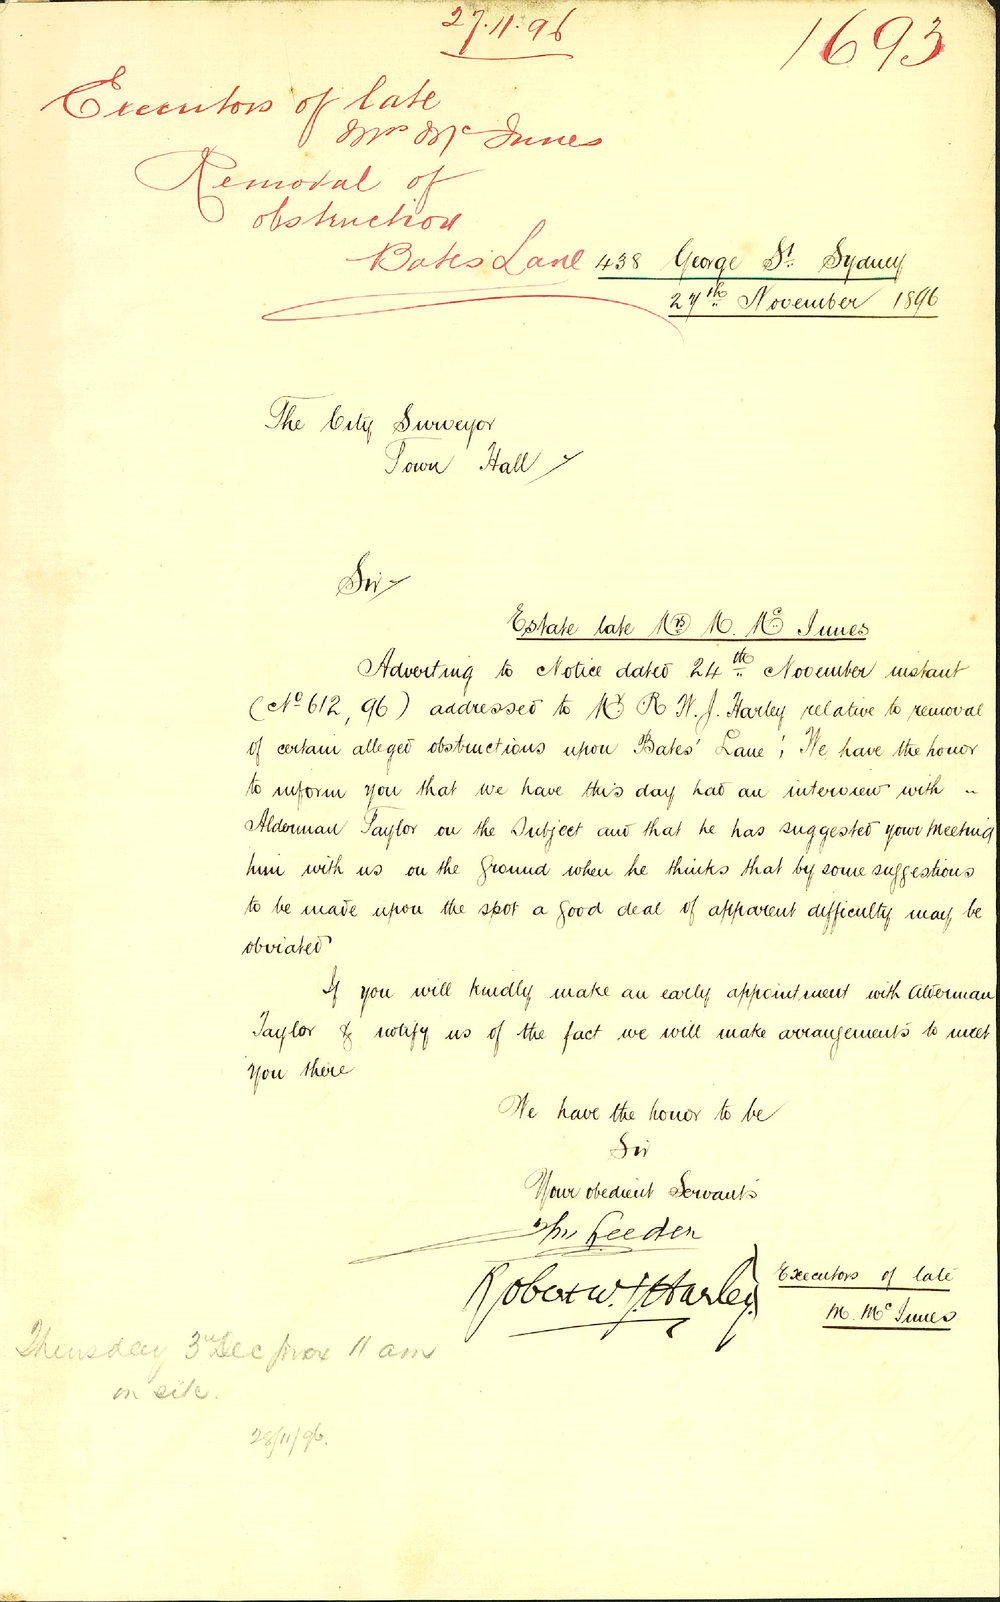 27.11.96
1693
Executors of late
Mrs McInnes
Removal of
obstruction
Bates' Lane
438 George St. Sydney
27th November 1896
The City Surveyor
Town Hall
Sir
Estate late Mrs M. McInnes
Adverting to Notice dated 24th November instant
(No 612, 96) addressed to Mr R W. J. Harley relative to removal
of certain alleged obstructions upon Bates' Lane; We have the honor
to inform you that we have this day had an interview with
Alderman Taylor on the Subject and that he has suggested your meeting
him with us on the ground when he thinks that by some suggestions
to be made upon the spot a good deal of apparent difficulty may be
obviated
If you will kindly make an early appointment with Alderman
Taylor & notify us of the fact we will make arrangements to meet
you there
We have the honor to be
Sir
Your obedient Servants
Leeder
Robert W. J. Harley
Executors of late
M. McInnes
Thursday 3rd Dec prox 11 am
on site.
28/11/96.